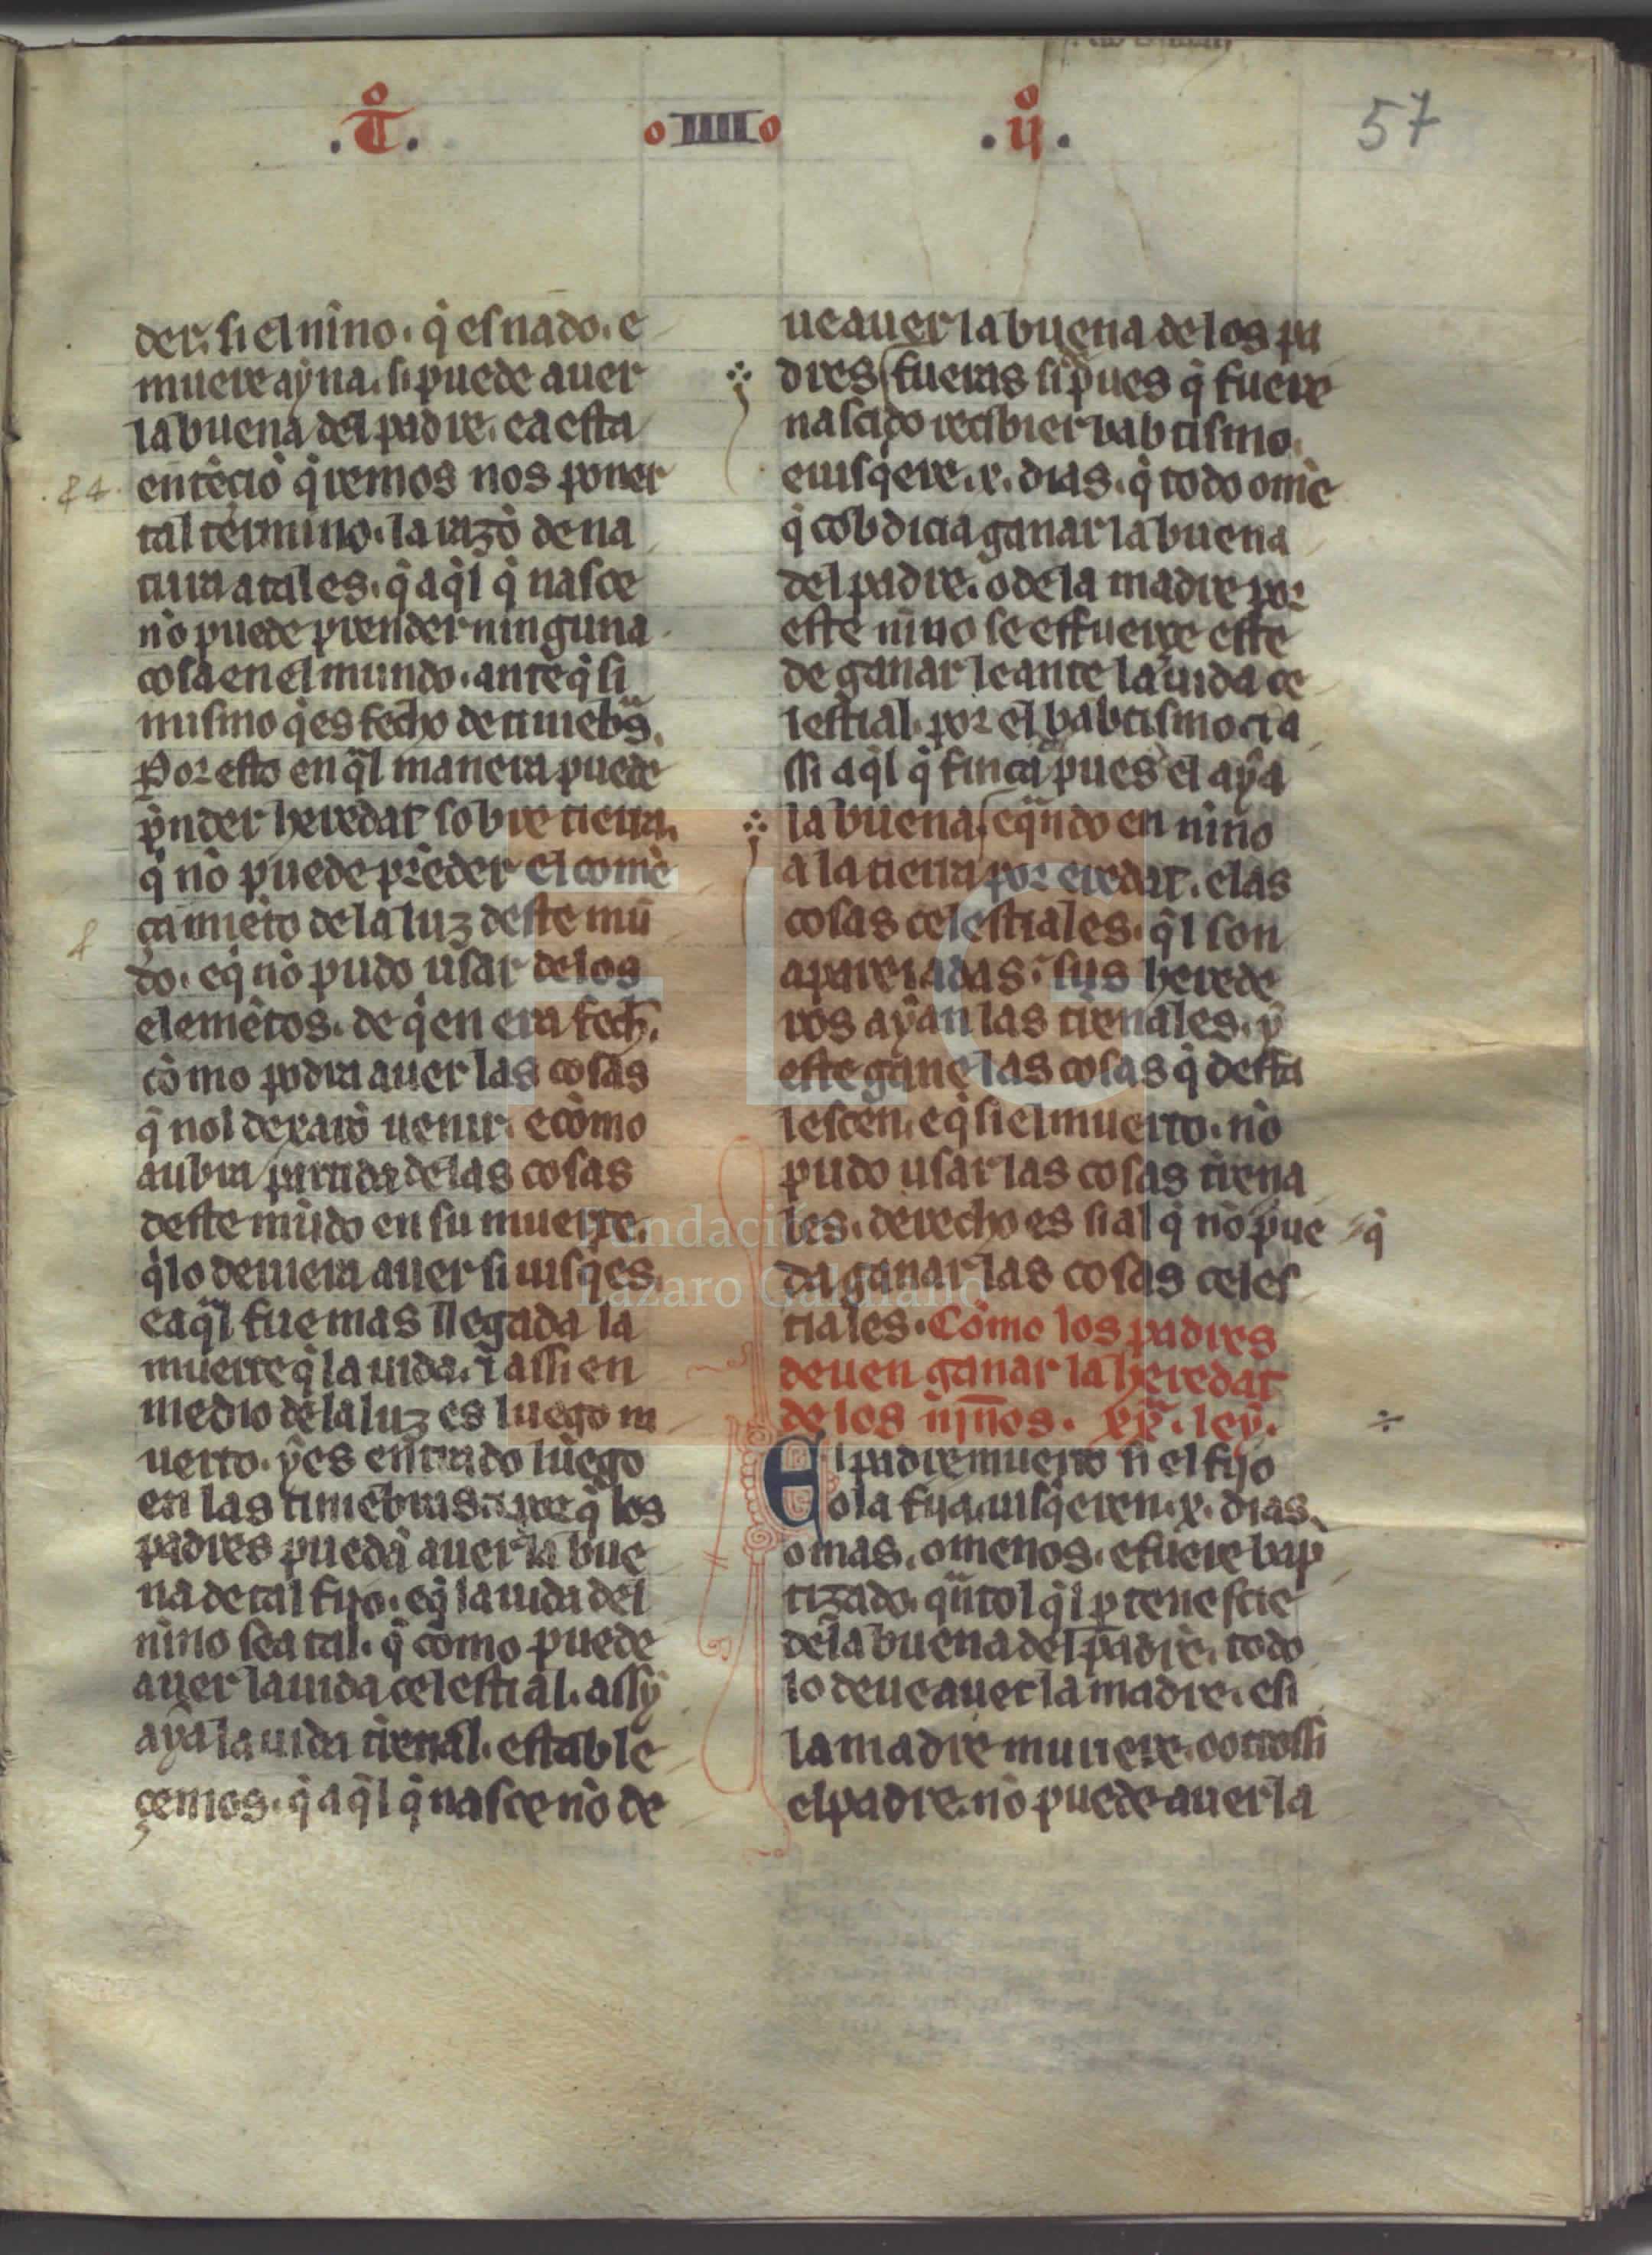 .t̊. IIII .ij̊. 57
der. si el nino. q̇ es nado. e
muere ayna. si puede auer
la buena del padre. ca esta
entēciō q̇remos nos poner
tal termino. la razō de na
tura a tales. q̇ aq̇l q̇ nasce
nō puede prender ninguna
cosa en el mundo. ante q̇ si
mismo q̇ es fecho de tiniebrͣs.
Por esto en qͣl manera puede
p̄nder heredat sobre tierra.
q̇ nō puede prēder el comē
çamiēto de la luz deste mū
do. e q̇ nō pudo usar de los
elemētos. de q̇ en era fech̄.
cōmo podra auer las cosas
q̇ nol dexarō uenir. e cōmo
aubra partida de las cosas
deste mūdo en su muerte.
q̇ lo deuiera auer si uisq̇es.
e aqͣl fue mas llegada la
muerte q̇ la uida. ⁊ assi en
medio de la luz es luego m
uerto. y es entrado luego
en las tiniebras. por q̇ los
padres puedā auer la bue
na de tal fijo. e q̇ la uida del
nino sea tal. q̇ cōmo puede
auer la uida celestial. assy
aya la uida tierral. estable
çemos. q̇ aq̇l q̇ nasce nō de
ue auer la buena de los pa
dres fueras si pͬues q̇ fuere
nascido recibier babtismo.
e uisq̇ere. x. dias. q̇ todo omē
q̇ cobdicia ganar la buena
del padre. o de la madre por
este nino se esfuerçe este
de ganar le ante la uida ce
lestial. por el babtismo. ⁊ a
ssi aq̇l q̇ finca pues el aya
la buena e qͣndo en nino
a la tierra por eredat. e las
cosas celestiales. q̇l son
apareiadas. sus herede
ros ayan las tierrales. y
este gane las cosas q̇ desfa
lescen. e q̇ si el muerto. nō
pudo usar las cosas tierra
les. derecho es si al q̇ nō pue q̇
da ganar las cosas celes
tiales. Cōmo los padres
deuen ganar la heredat
de los nin̄os. xxͣ. ley.
El padre muerto si el fijo
o la fija. uisq̇eren. x. dias.
o mas. o menos. e fuere bap
tizado. qͣntol q̇l ꝑtenescie
de la buena del padre. todo
lo deue auer la madre. e si
la madre muriere. o otrossi
el padre. nō puede auer la
FLG
Fundación
Lázaro Galdiano